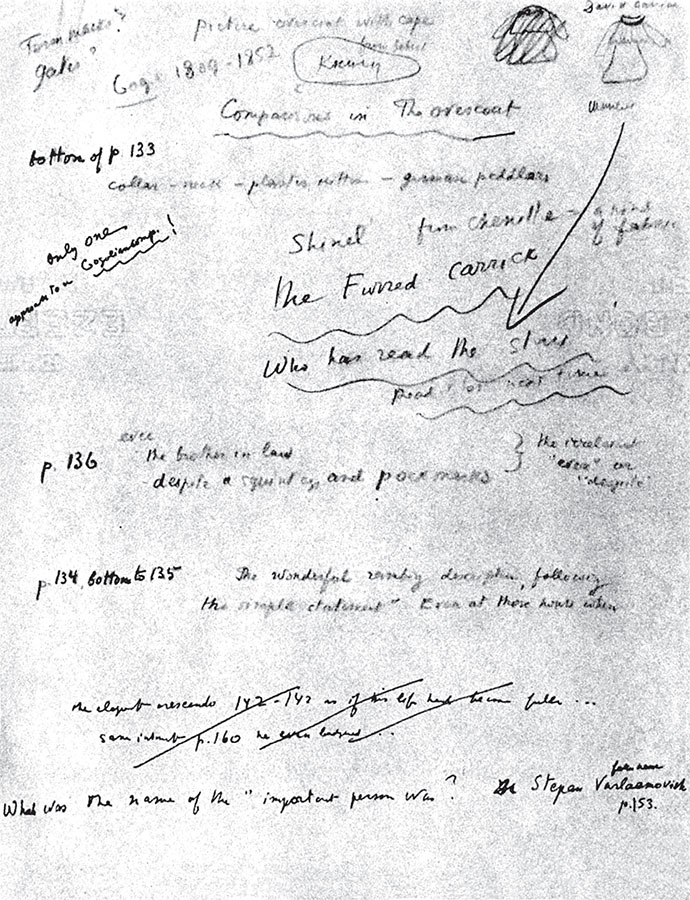 Term marks?
gates?
Picture overcoat with cape
Gogol 1809-1852
from
David
Comparisons in The Overcoat
bottom of p 133
collar - neck - plaster kitten - german peddlars
only one
approach to a Gogolian comp. !
Shinel' from Chenille - a kind
of fabric
The Furred Carrick
Who has read the story
Read it for next time
even
p. 136 the brother in law
despite a squint eye and pockmarks
the irrelevant
"even" or
"despite"
p. 134, bottom to 135 The wonderful description, following
the simple statement " Even at those hours when
the eloquent crescendo 142-143 as if his life had become fuller ...
same p.160 he even ...
What was the name of the "important person was ? Stepan Varlaamovich
p. 153.